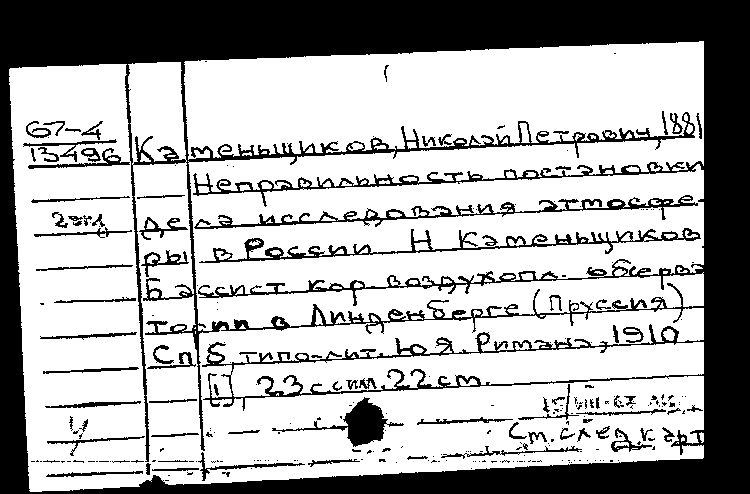 67-4
13496
Каменьщиков, Николай Петрович, 1881
Неправильность постановки
2 экз
дела исследования атмосфе-
ры в России Н Каменьщиков
Б ассист кор. воздухопл. обсерва
тории в Линденберге (Пруссия)
СпБ, типо-лит. Ю Я. Римана, 1910
[1], 23 с с илл. 22 см.
См. след. карт